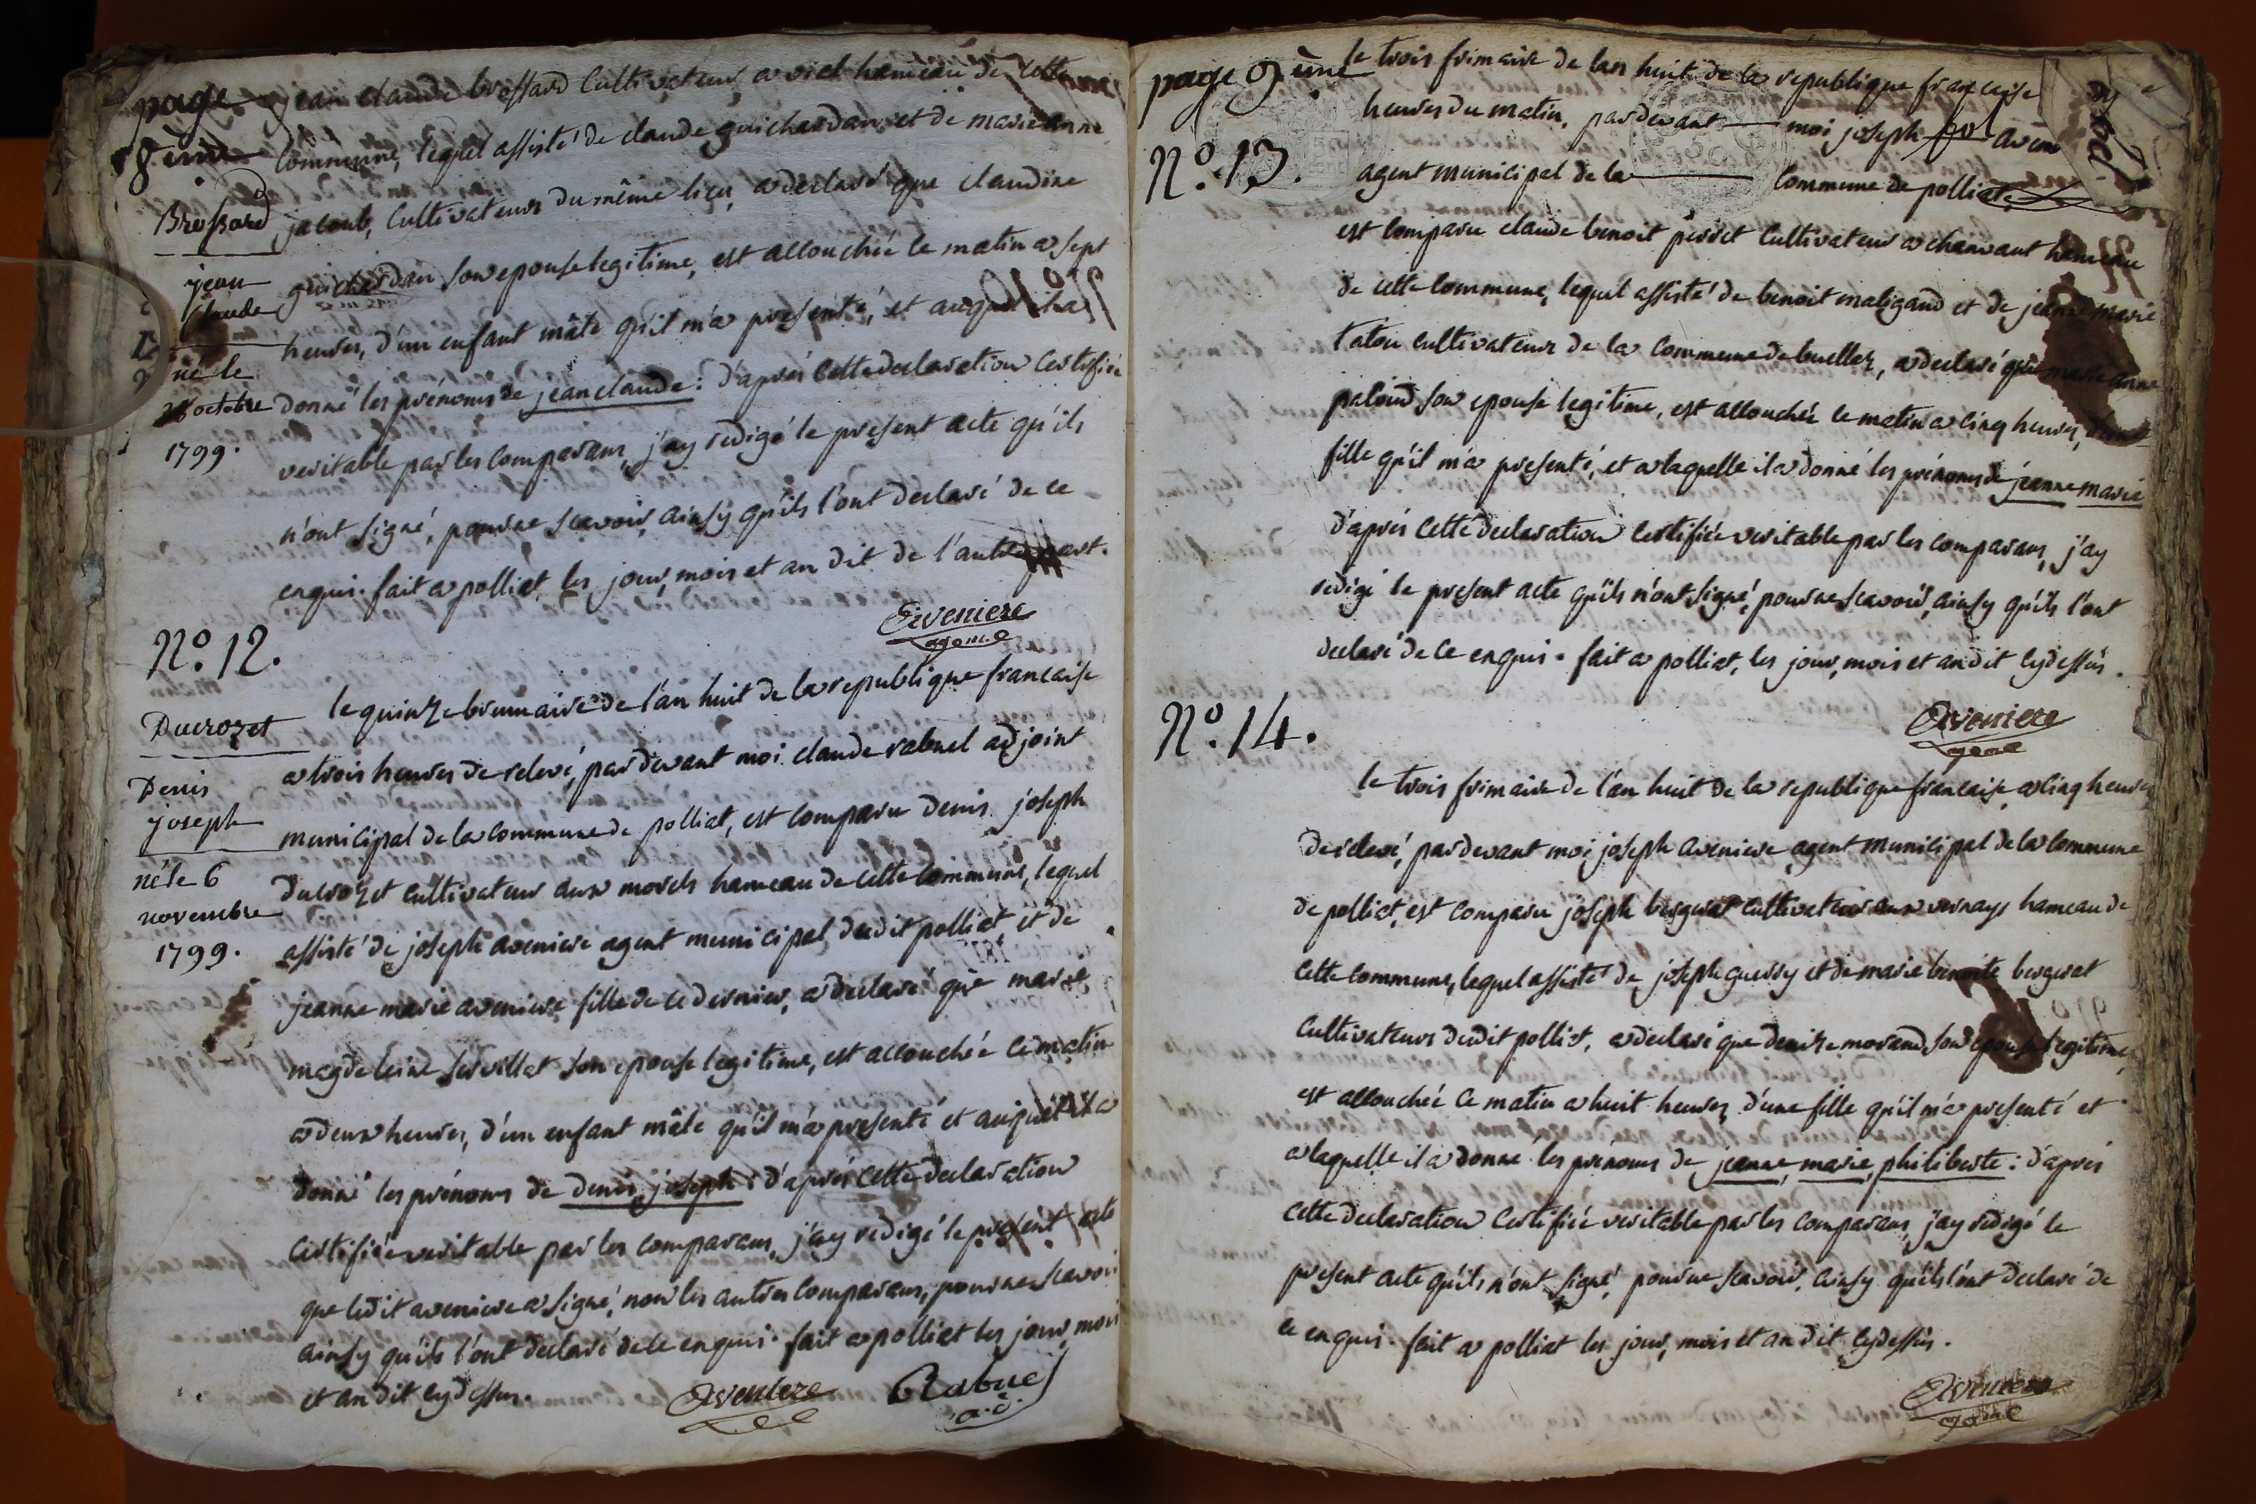 page
8ème
Brossard
jean
claude
né le
octobre
1799.
jean claude brossard cultivateur a viel hameau de cette
commune, lequel assisté de claude guichardan et de marie anne
jacoub, cultivateurs du même lieu, a declaré que claudine
guichardan son epouse legitime, est accouchée le matin a sept
heures, d'un enfant mâle qu'il m'a presenté, et auquel il a
donné les prénoms de jean claude : d'après cette declaration certifiée
veritable par les comparans, j'ay redigé le present acte qu'ils
n'ont signé, pour ne scavoir, ainsy qu'ils l'ont declaré de ce
enquis. fait a polliat, les jour, mois et an dit de l'autre part.
Aveniere
agent
N.º 12.
Ducrozet
Denis
joseph
né le 6
novembre
1799.
le quinze brumaire de l'an huit de la republique francaise
a trois heures de relevé, par devant moi claude rabuel adjoint
municipal de la commune de polliat, est comparu denis joseph
ducrozet cultivateur aux morels hameau de cette commune, lequel
assisté de joseph aveniere agent municipal dudit polliat et de
jeanne marie aveniere fille de ce dernier, a declaré que marie
magdeleine servillat son epouse legitime, est accouchée ce matin
a deux heures, d'un enfant mâle qu'il m'a presenté et auquel il a
donné les prénoms de denis joseph : d'après cette declaration
certifiée veritable par les comparans, j'ay redigé le present acte
que ledit aveniere a signé, non les autres comparans, pour ne scavoir
ainsy qu'ils l'ont declaré de ce enquis. fait a polliat les jour, mois
et an dit cydessus.
Aveniere Rabuel
a.d.
page 9ème
N.º 13.
le trois frimaire de l'an huit de la republique francaise
heures du matin, pardevant moi joseph
agent municipal de la commune de polliat,
est comparu claude benoit perret cultivateur a chanvant hameau
de cette commune, lequel assisté de benoit maligand et de jeanne marie
tatou cultivateurs de la commune de buellas, a declaré que marie anne
paloud son epouse legitime, est accouchée le matin a cinq heures, d'une
fille qu'il m'a presenté, et a laquelle il a donné les prénoms de jeanne marie
d'après cette declaration certifiée veritable par les comparans, j'ay
redigé le present acte qu'ils n'ont signé, pour ne scavoir, ainsy qu'ils l'ont
declaré de ce enquis. fait a polliat, les jour, mois et an dit cydessus.
Aveniere
agent
N.º 14.
le trois frimaire de l'an huit de la republique francaise, a cinq heures
de relevé, pardevant moi joseph aveniere agent municipal de la commune
de polliat, est comparu joseph bergerat cultivateur aux vernays hameau de
cette commune, lequel assisté de joseph guerry et de marie benoite bergerat
cultivateurs dudit polliat, a declaré que denise morand, son epouse legitime,
est accouchée ce matin a huit heures, d'une fille qu'il m'a presenté et
a laquelle il a donné les prénoms de jeanne, marie, philiberte : d'après
cette declaration certifiée veritable par les comparans, j'ay redigé le
present acte qu'ils n'ont signé, pour ne scavoir, ainsy qu'ils l'ont declaré de
ce enquis. fait a polliat les jour, mois et an dit cydessus.
Aveniere
agent